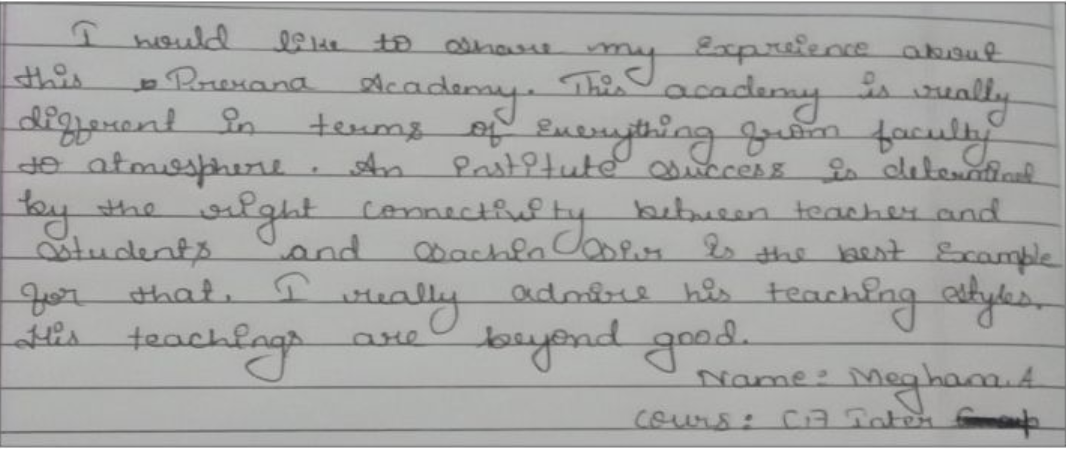 I would like to share my Expreience about
this Prerana Academy. This academy is really
different in terms of Everything from faculty
to atmosphere. An institute success is determined
by the right connectivity between teacher and
students and sachin sir is the best Example
for that. I really admire his teaching styles.
His teachings are beyond good.
Name: Meghana.A
Cours: CA Inter